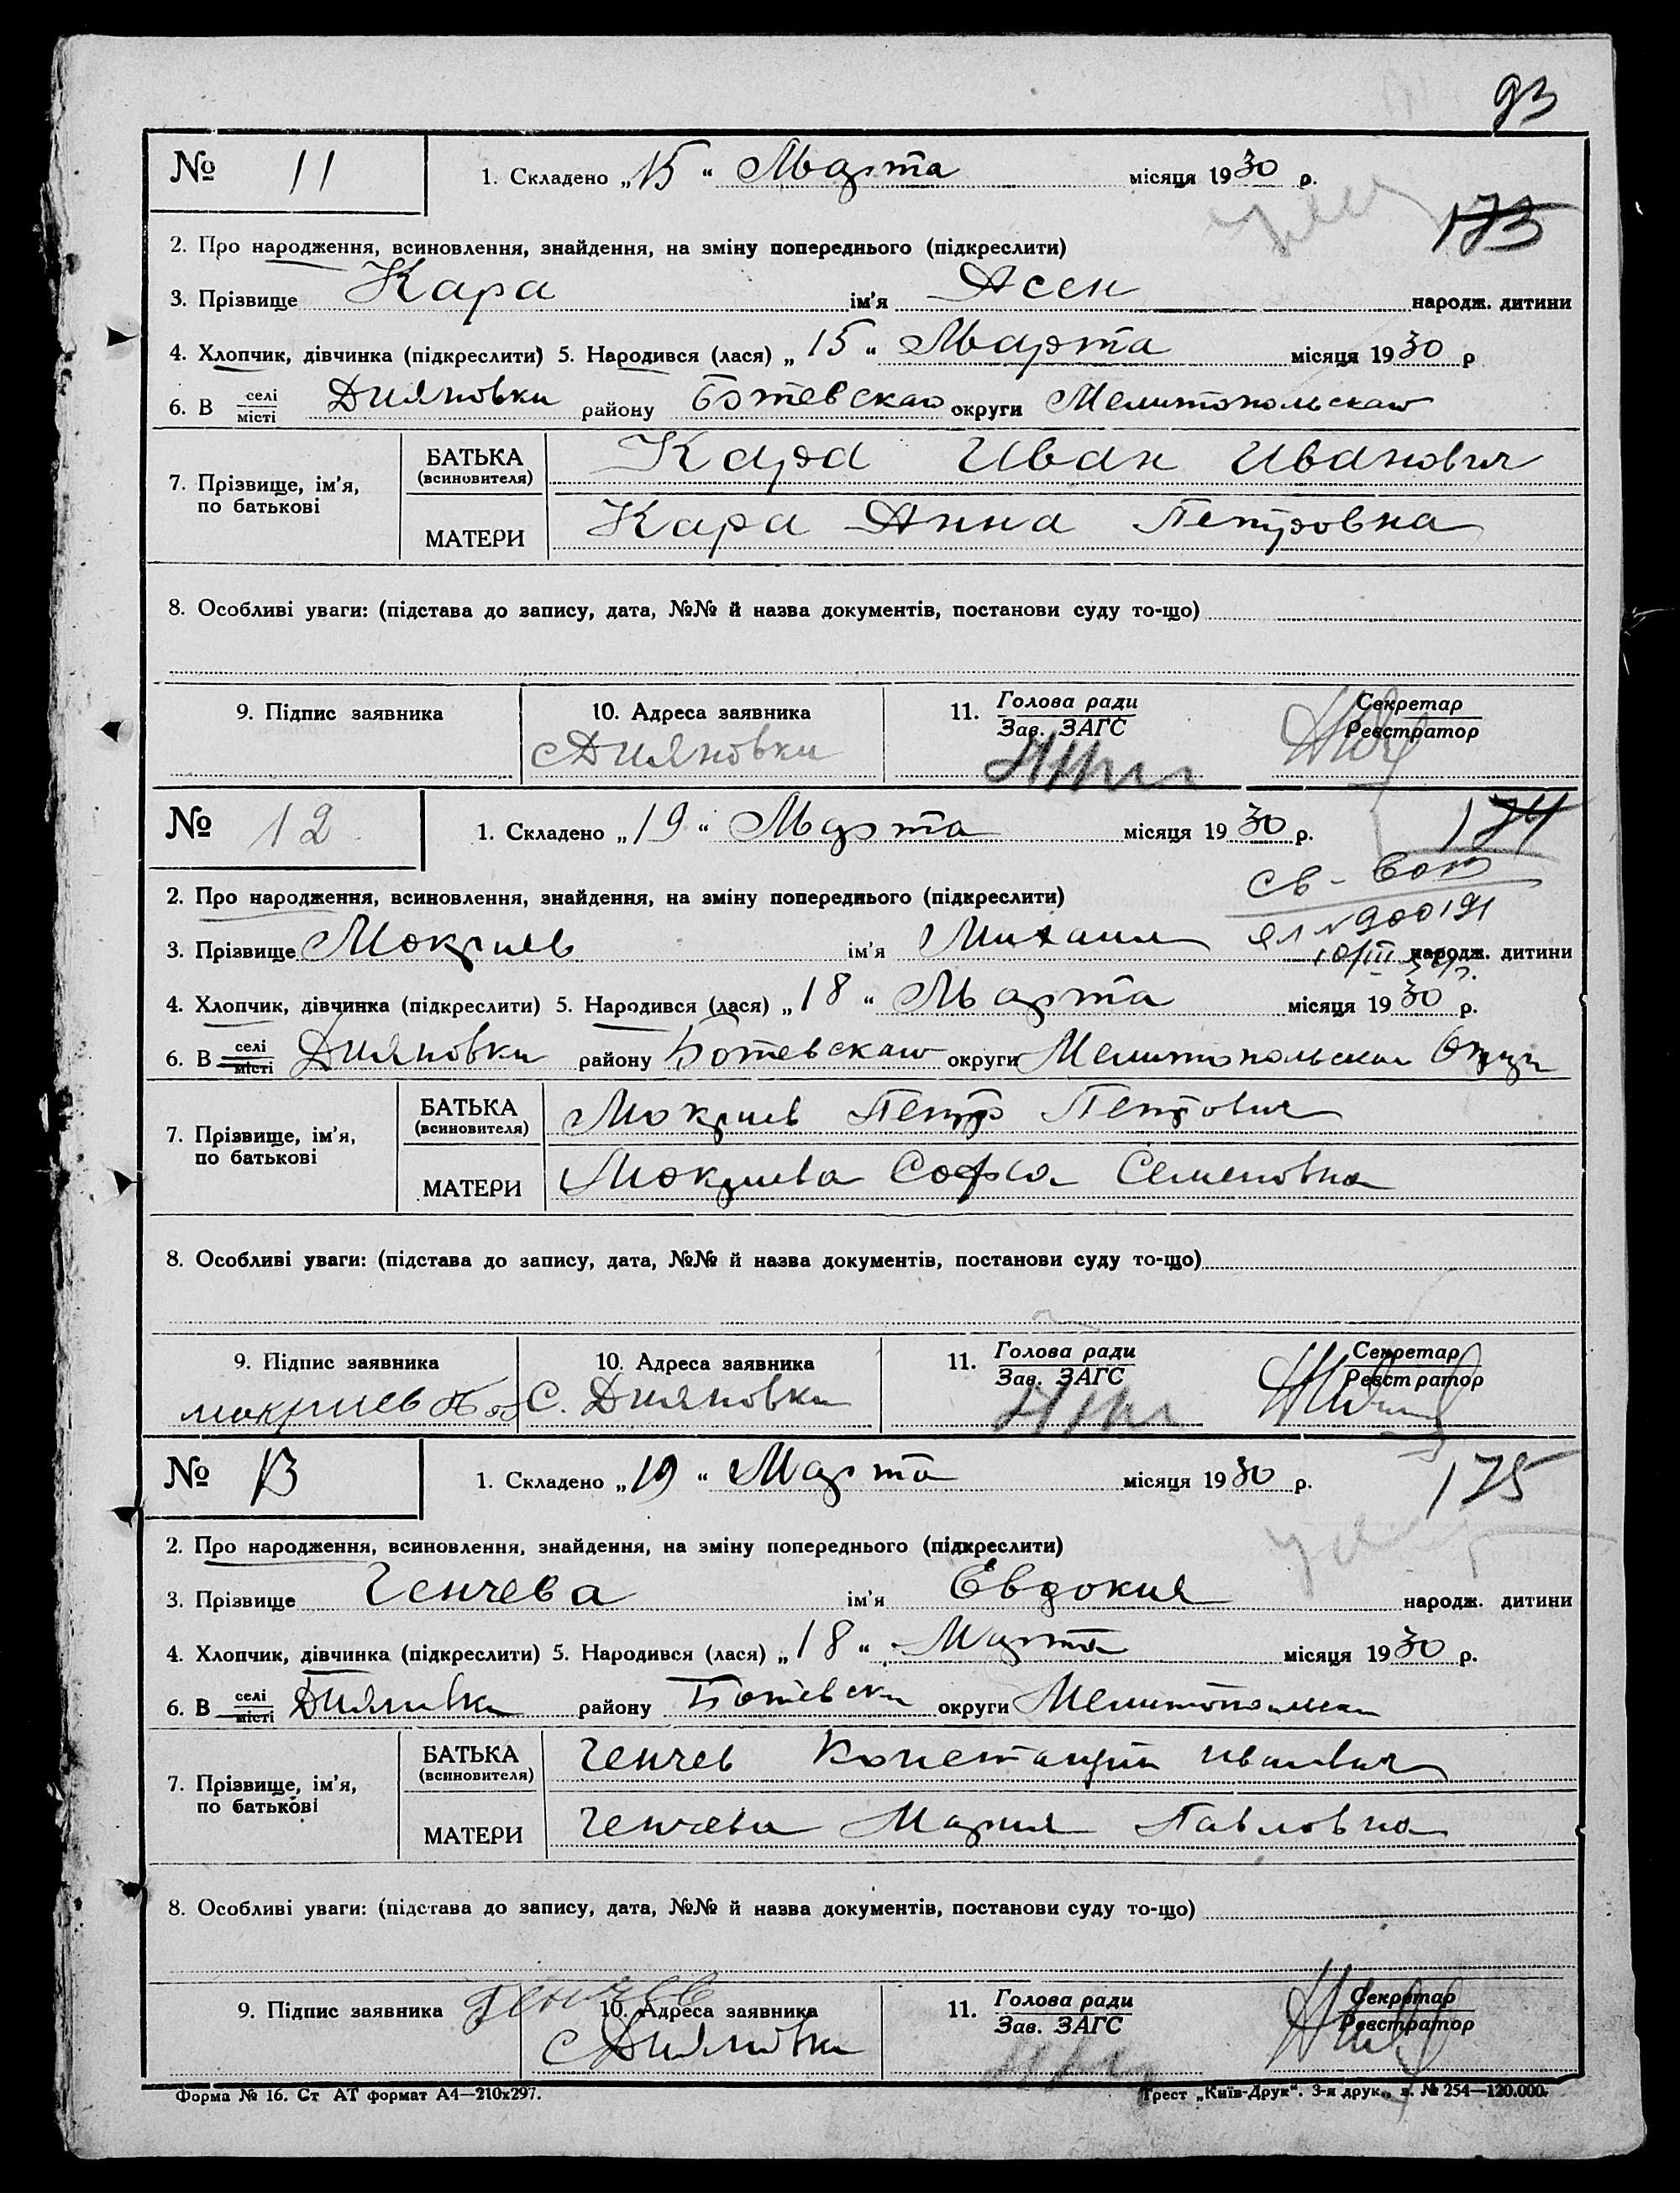 93
№ 11 1. Складено „15“ Марта місяця 1930 р.
173
2. Про народження, всиновлення, знайдення, на зміну попереднього (підкреслити)
3. Прізвище Кара ім'я Асен народж. дитини
4. Хлопчик, дівчинка (підкреслити) 5. Народився (лася) „15“ Марта місяця 1930 р
6. В селі місті Дияновки району Ботевскаго округи Мелитопольскаго
7. Прізвище, ім'я, по батькові
БАТЬКА (всиновителя) Кара Иван Иванович
МАТЕРИ Кара Анна Петровна
8. Особливі уваги: (підстава до запису, дата, №№ й назва документів, постанови суду то-що)
9. Підпис заявника 10. Адреса заявника 11. Голова ради Зав. ЗАГС Секретар Реєстратор
с Дияновки
№ 12 1. Складено „19“ Марта місяця 1930 р.
174
2. Про народження, всиновлення, знайдення, на зміну попереднього (підкреслити)
3. Прізвище Мокриев ім'я Михаил народж. дитини
4. Хлопчик, дівчинка (підкреслити) 5. Народився (лася) „18“ Марта місяця 1930 р.
6. В селі місті Дияновки району Ботевскаго округи Мелитопольскаго
7. Прізвище, ім'я, по батькові
БАТЬКА (всиновителя) Мокриев Петр Петрович
МАТЕРИ Мокриева Софья Семеновна
8. Особливі уваги: (підстава до запису, дата, №№ й назва документів, постанови суду то-що)
9. Підпис заявника 10. Адреса заявника 11. Голова ради Зав. ЗАГС Секретар Реєстратор
мокриев С. Дияновки
№ 13 1. Складено „19“ Марта місяця 1930 р.
175
2. Про народження, всиновлення, знайдення, на зміну попереднього (підкреслити)
3. Прізвище Генчева ім'я Евдокия народж. дитини
4. Хлопчик, дівчинка (підкреслити) 5. Народився (лася) „18“ Марта місяця 1930 р.
6. В селі місті Дияновки району Ботевски округи
7. Прізвище, ім'я, по батькові
БАТЬКА (всиновителя) Генчев Константин Иванович
МАТЕРИ Генчева Мария Павловна
8. Особливі уваги: (підстава до запису, дата, №№ й назва документів, постанови суду то-що)
9. Підпис заявника 10. Адреса заявника 11. Голова ради Зав. ЗАГС Секретар Реєстратор
Генчев с Дияновки
Форма № 16. Ст АТ формат А4—210х297. Трест „Київ-Друк“. 3-я друк., з. № 254—120.000.